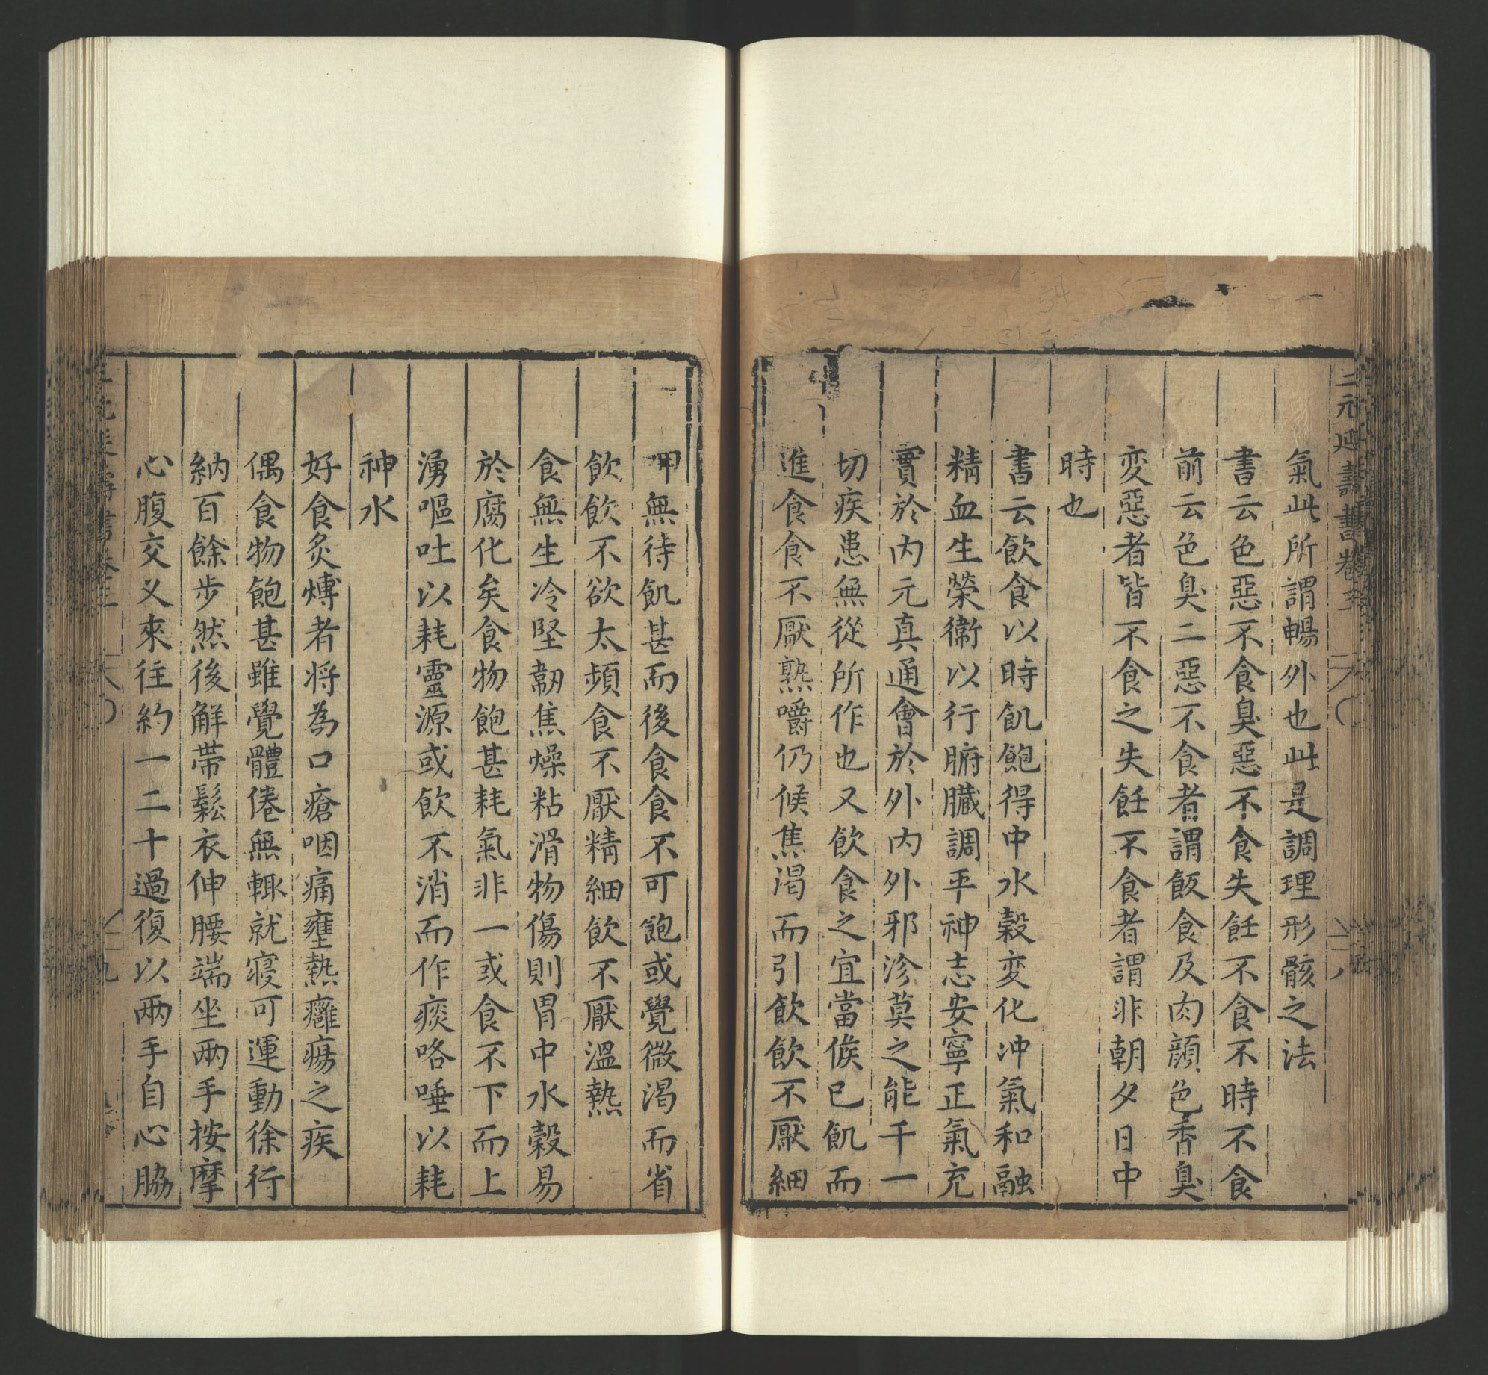 氣此所謂暢外也此是調理形骸之法
書云色惡不食臭惡不食失飪不食不時不食
前云色臭二惡不食者謂飯食及肉顔色香臭
変惡者皆不食之失飪不食者謂非朝夕日中
時也
書云飲食以時飢飽得中水穀変化冲氣和融
精血生榮衛以行腑臓調平神志安寧正氣充
實於内元真通會於外内外邪沴莫之能干一
切疾患無從所作也又飲食之宜當候已飢而
進食食不厭熟嚼仍候焦渴而引飲飲不厭細
呷無待飢甚而後食食不可飽或覺微渴而省
飲飲不欲太頻食不厭精細飲不厭溫熱
食無生冷堅韌焦燥粘滑物傷則胃中水穀易
於腐化矣食物飽甚耗氣非一或食不下而上
湧嘔吐以耗靈源或飲不消而作痰咯唾以耗
神水
好食炙煿者将為口瘡咽痛壅熱癰瘍之疾
偶食物飽甚雖覺體倦無輙就寢可運動徐行
納百餘步然後解帯鬆衣伸腰端坐兩手按摩
心腹交叉來往約一二十過復以兩手自心脇